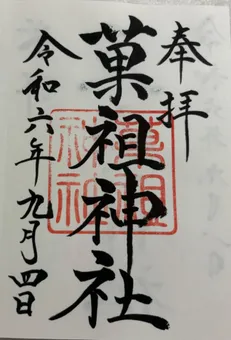 奉拝
菓祖神社
令和六年九月四日